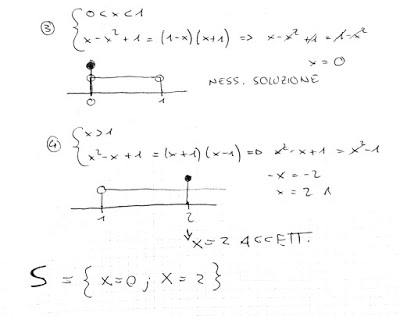 ③ { 0 < x < 1
x-x²+1 = (1-x)(x+1) => x-x²+1 = 1-x²
x=0
NESS. SOLUZIONE
0 1
④ { x>1
x²-x+1 = (x+1)(x-1) => x²-x+1 = x²-1
-x=-2
x=2
1 2
↓ x=2 ACCETT.
S = { x=0 ; x=2 }